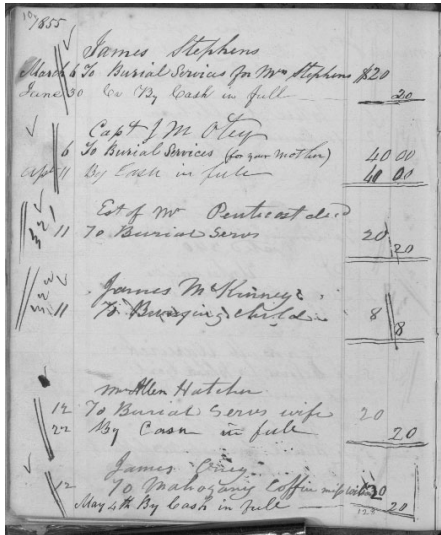 1855
James Stephens
March 6 To Burial Services for Mrs Stephens $20
June 30 Cr By Cash in full 20
Capt J M Otey
6 To Burial Services (for your mother) 40 00
Apl 11 By Cash in full 40 00
Est of Mr Penticost decd
11 To Burial Servs 20 20
James McKinney
11 To Burying child 8 8
Mr Allen Hatcher
12 To Burial Servs wife 20
22 By Cash in full 20
James
12 To Mahogany Coffin
May 4th By Cash in full 20